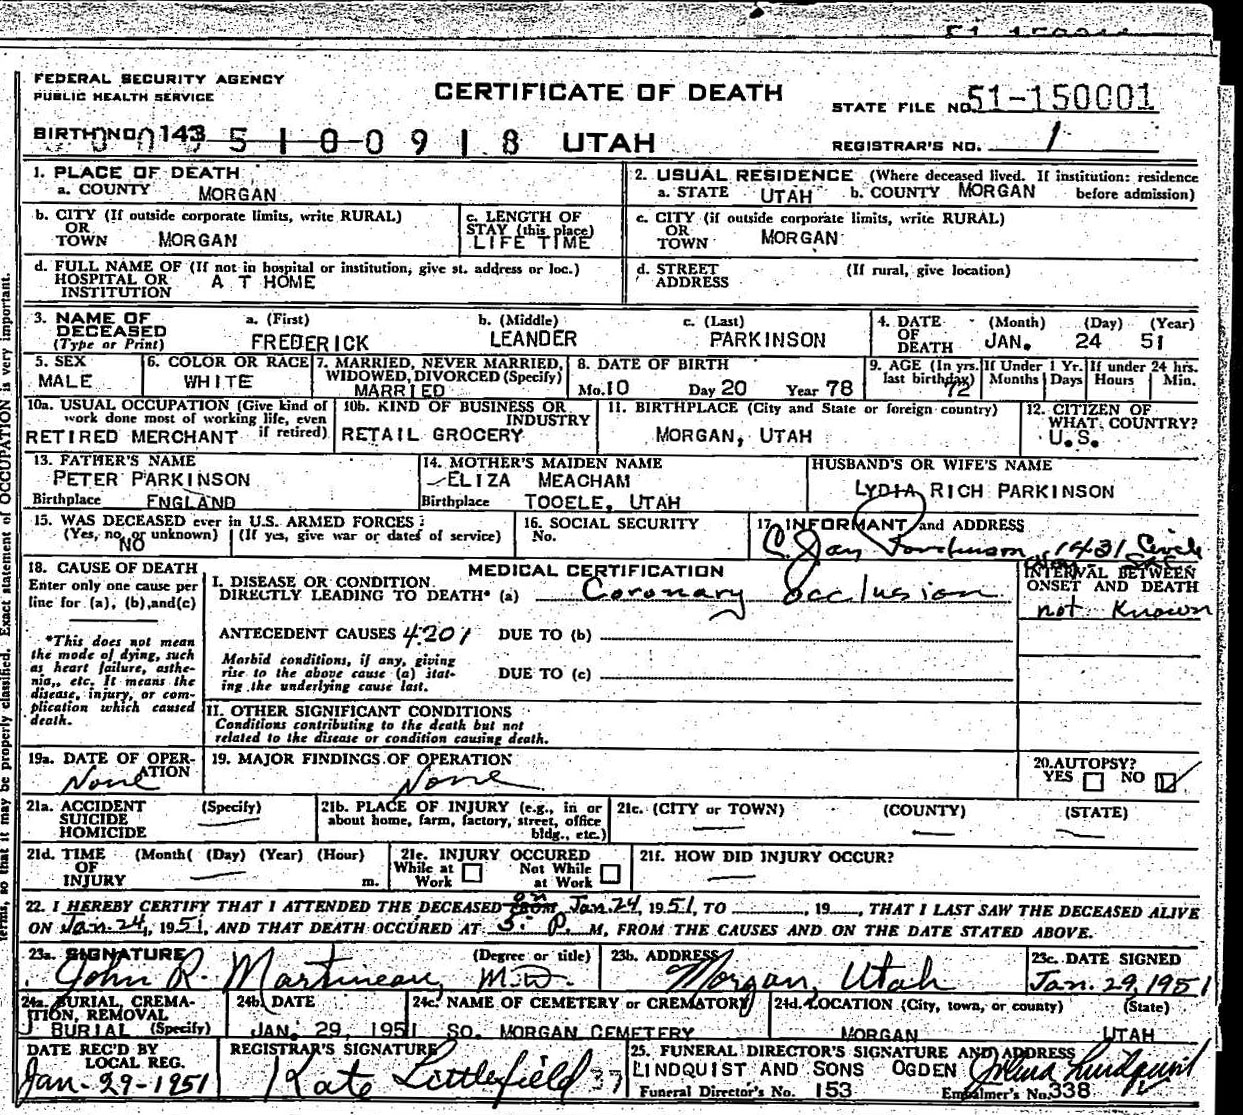 FEDERAL SECURITY AGENCY
PUBLIC HEALTH SERVICE
CERTIFICATE OF DEATH
STATE FILE NO. 51-150001
BIRTH NO. 143
5 1 0 0 9 1 8 UTAH
REGISTRAR'S NO. 1
1. PLACE OF DEATH
a. COUNTY MORGAN
2. USUAL RESIDENCE (Where deceased lived. If institution: residence before admission)
a. STATE UTAH b. COUNTY MORGAN
b. CITY (If outside corporate limits, write RURAL)
OR
TOWN MORGAN
c. LENGTH OF
STAY (this place)
LIFE TIME
c. CITY (if outside corporate limits, write RURAL)
OR
TOWN MORGAN
d. FULL NAME OF (If not in hospital or institution, give st. address or loc.)
HOSPITAL OR
INSTITUTION A T HOME
d. STREET
ADDRESS
(If rural, give location)
3. NAME OF
DECEASED
(Type or Print)
a. (First)
FREDERICK
b. (Middle)
LEANDER
c. (Last)
PARKINSON
4. DATE
OF
DEATH
(Month) (Day) (Year)
JAN. 24 51
5. SEX
MALE
6. COLOR OR RACE
WHITE
7. MARRIED, NEVER MARRIED,
WIDOWED, DIVORCED (Specify)
MARRIED
8. DATE OF BIRTH
Mo. 10 Day 20 Year 78
9. AGE (In yrs.
last birthday)
72
If Under 1 Yr.
Months Days
If under 24 hrs.
Hours Min.
10a. USUAL OCCUPATION (Give kind of
work done most of working life, even
if retired)
RETIRED MERCHANT
10b. KIND OF BUSINESS OR
INDUSTRY
RETAIL GROCERY
11. BIRTHPLACE (City and State or foreign country)
MORGAN, UTAH
12. CITIZEN OF
WHAT COUNTRY?
U.S.
13. FATHER'S NAME
PETER PARKINSON
Birthplace ENGLAND
14. MOTHER'S MAIDEN NAME
ELIZA MEACHAM
Birthplace TOOELE, UTAH
HUSBAND'S OR WIFE'S NAME
LYDIA RICH PARKINSON
15. WAS DECEASED ever in U.S. ARMED FORCES
(Yes, no, or unknown) (If yes, give war or dates of service)
NO
16. SOCIAL SECURITY
No.
17. INFORMANT and ADDRESS
C. Jay Parkinson, 1431 Circle
18. CAUSE OF DEATH
Enter only one cause per
line for (a), (b), and (c)
*This does not mean
the mode of dying, such
as heart failure, asthe-
nia, etc. It means the
disease, injury, or com-
plication which caused
death.
MEDICAL CERTIFICATION
I. DISEASE OR CONDITION
DIRECTLY LEADING TO DEATH* (a) Coronary Occlusion
INTERVAL BETWEEN
ONSET AND DEATH
not known
ANTECEDENT CAUSES 4201 DUE TO (b)
Morbid conditions, if any, giving
rise to the above cause (a) stat-
ing the underlying cause last.
DUE TO (c)
II. OTHER SIGNIFICANT CONDITIONS
Conditions contributing to the death but not
related to the disease or condition causing death.
19a. DATE OF OPER-
ATION
None
19. MAJOR FINDINGS OF OPERATION
None
20. AUTOPSY?
YES NO
21a. ACCIDENT (Specify)
SUICIDE
HOMICIDE
21b. PLACE OF INJURY (e.g., in or
about home, farm, factory, street, office
bldg., etc.)
21c. (CITY or TOWN) (COUNTY) (STATE)
21d. TIME (Month( (Day) (Year) (Hour)
OF
INJURY m.
21e. INJURY OCCURED
While at Work Not While at Work
21f. HOW DID INJURY OCCUR?
22. I HEREBY CERTIFY THAT I ATTENDED THE DECEASED FROM on Jan. 24, 1951, TO ........, 19...., THAT I LAST SAW THE DECEASED ALIVE
ON Jan. 24, 1951, AND THAT DEATH OCCURED AT 5: P. M, FROM THE CAUSES AND ON THE DATE STATED ABOVE.
23a. SIGNATURE (Degree or title)
John R. Martineau, M.D.
23b. ADDRESS
Morgan, Utah
23c. DATE SIGNED
Jan. 29, 1951
24a. BURIAL, CREMA-
TION, REMOVAL
BURIAL (Specify)
24b. DATE
JAN. 29, 1951
24c. NAME OF CEMETERY or CREMATORY
SO. MORGAN CEMETERY
24d. LOCATION (City, town, or county) (State)
MORGAN UTAH
DATE REC'D BY
LOCAL REG.
Jan-29-1951
REGISTRAR'S SIGNATURE
Kate Littlefield 37
25. FUNERAL DIRECTOR'S SIGNATURE AND ADDRESS
LINDQUIST AND SONS OGDEN
Funeral Director's No. 153 Embalmer's No. 338
terms, so that it may be properly classified. Exact statement of OCCUPATION is very important.